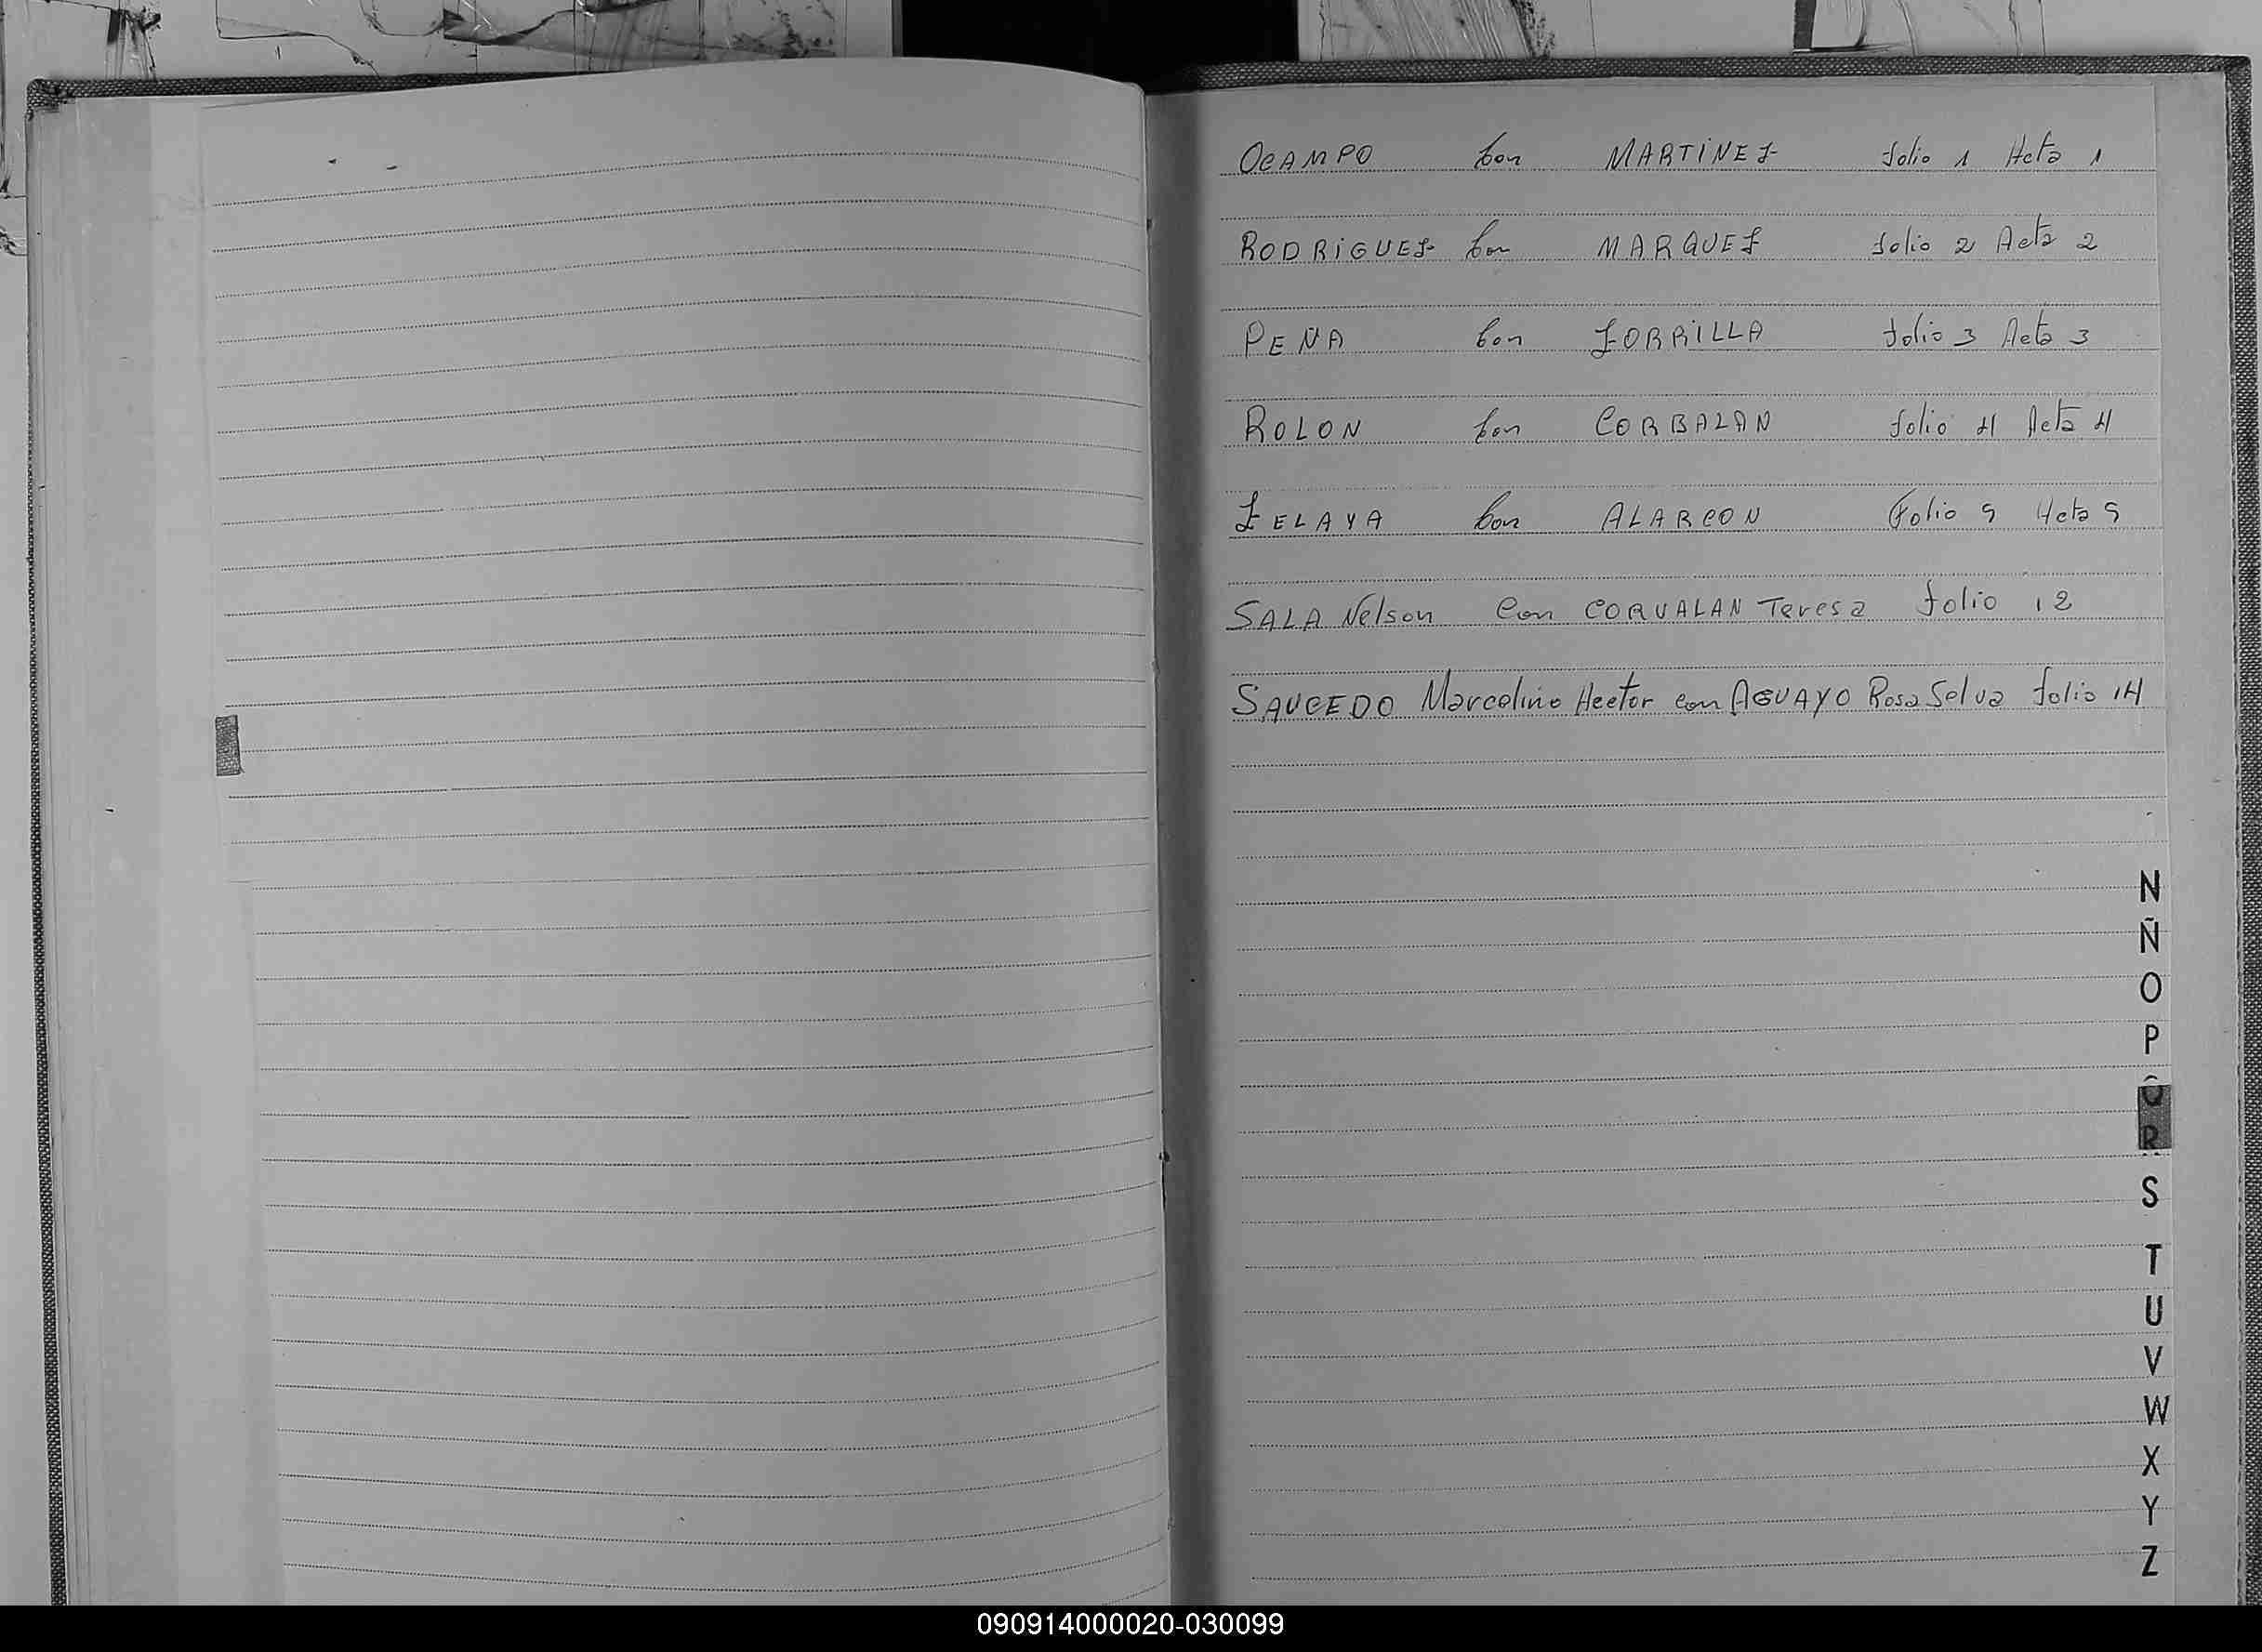 OCAMPO con MARTINEZ folio 1 Acta 1
RODRIGUEZ con MARQUEZ folio 2 Acta 2
PEÑA con ZORRILLA folio 3 Acta 3
ROLON con CORBALAN folio 4 Acta 4
ZELAYA con ALARCON Folio 9 Acta 9
SALA Nelson con CORVALAN Teresa folio 12
SAUCEDO Marcelino Hector con AGUAYO Rosa Selva folio 14
N
Ñ
O
P
Q
R
S
T
U
V
W
X
Y
Z
090914000020-030099